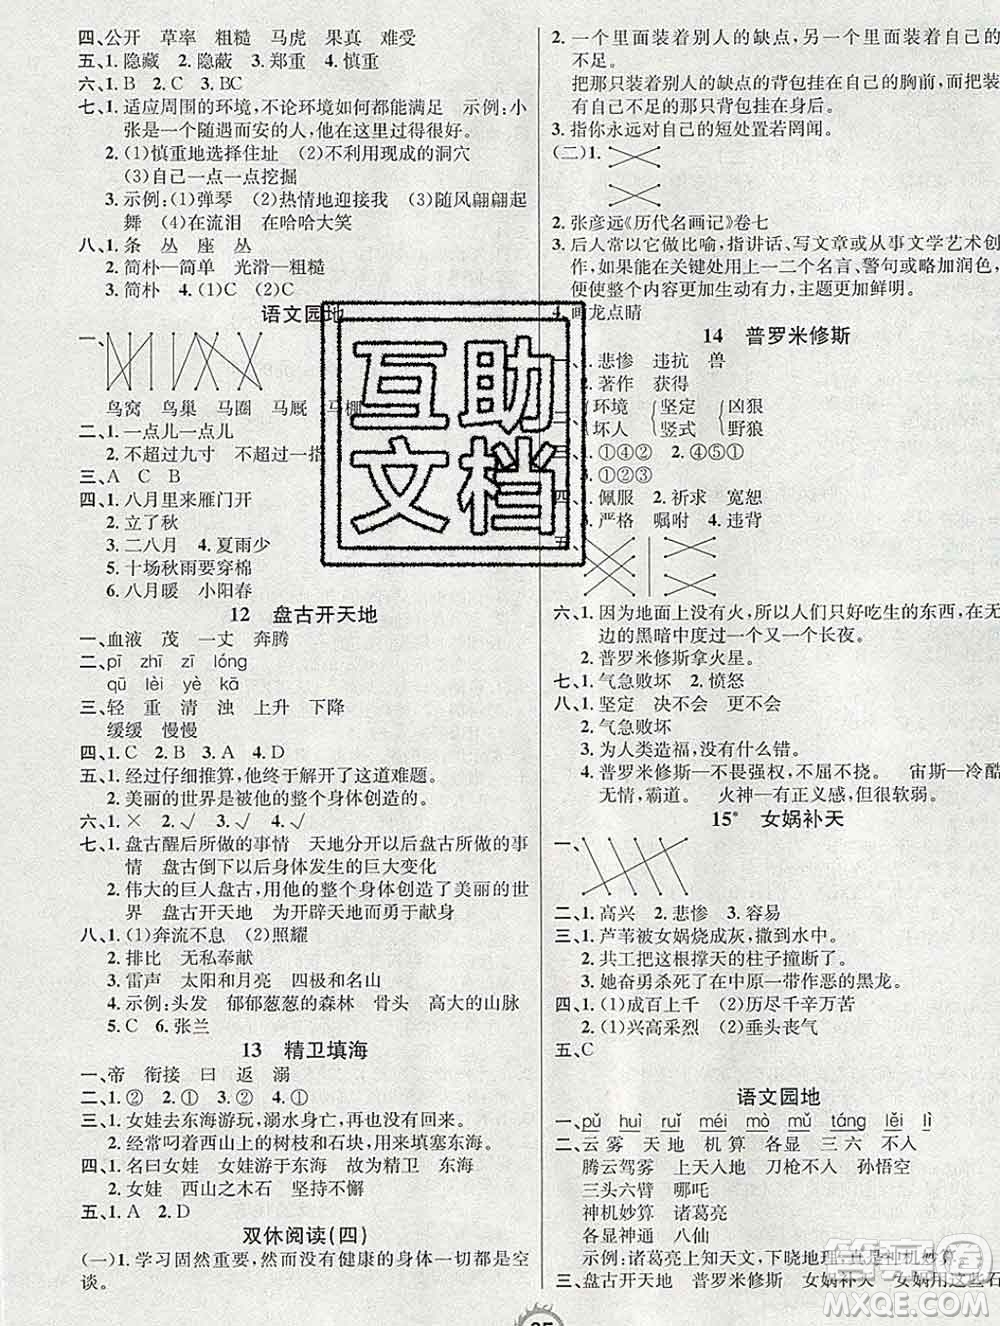 四、公开 草率 粗糙 马虎 果真 难受
五、1.隐藏 2.隐蔽 3.郑重 4.慎重
六、1.B 2.C 3.BC
七、1.适应周围的环境,不论环境如何都能满足 示例:小
张是一个随遇而安的人,他在这里过得很好。
2.(1)慎重地选择住址 (2)不利用现成的洞穴
(3)自己一点一点挖掘
3.示例:(1)弹琴 (2)热情地迎接我 (3)随风翩翩起
舞 (4)在流泪 在哈哈大笑
八、1.条 丛 座 丛
2.简朴—简单 光滑—粗糙
3.简朴 4.(1)C (2)C
语文园地
一、
鸟窝 鸟巢 马圈 马厩 马棚
二、1.一点儿一点儿
2.不超过九寸 不超过一指
三、A C B
四、1.八月里来雁门开
2.立了秋
3.二八月 4.夏雨少
5.十场秋雨要穿棉
6.八月暖 小阳春
12 盘古开天地
一、血液 茂 一丈 奔腾
二、pī zhī zī lóng
qū lèi yè kā
三、轻 重 清 浊 上升 下降
缓缓 慢慢
四、1.C 2.B 3.A 4.D
五、1.经过仔细推算,他终于解开了这道难题。
2.美丽的世界是被他的整个身体创造的。
六、1.× 2.√ 3.√ 4.√
七、1.盘古醒后所做的事情 天地分开以后所做的事
情 盘古倒下以后身体发生的巨大变化
2.伟大的巨人盘古,用他的整个身体创造了美丽的世
界 盘古开天地 为开辟天地而勇于献身
八、1.(1)奔流不息 (2)照耀
2.排比 无私奉献
3.雷声 太阳和月亮 四极和名山
4.示例:头发 郁郁葱葱的森林 骨头 高大的山脉
5.C 6.张兰
13 精卫填海
一、帝 衔接 曰 返 溺
二、1.② 2.① 3.① 4.②
三、1.女娃去东海游玩,溺水身亡,再也没有回来。
2.经常叼着西山上的树枝和石块,用来填塞东海。
四、1.名曰女娃 女娃游于东海 故为精卫 东海
2.女娃 西山之木石 坚持不懈
五、1.D 2.A
双休阅读(四)
(一)1.学习固然重要,然而没有健康的身体一切都是空
谈。
2.一个里面装着别人的缺点,另一个里面装着自己的
不足。
把那只装着别人的缺点的背包挂在自己的胸前,而装
有自己不足的那只背包挂在身后。
3.指你永远对自己的短处置若罔闻。
(二)1.
2.张彦远《历代名画记》卷七
3.后人常以它做比喻,指讲话、写文章或从事文学艺术创
作,如果能在关键处用上一二个名言、警句或略加润色,
便使整个内容更加生动有力,主题更加鲜明。
4.画龙点睛
14 普罗米修斯
悲惨 违抗 兽
著作 获得
环境 坚定 凶狠
坏人 竖式 野狼
①④② 2.④⑤①
①②③
四、佩服 2.祈求 宽恕
严格 嘱咐 4.违背
五、
六、1.因为地面上没有火,所以人们只好吃生的东西,在无
边的黑暗中度过一个又一个长夜。
2.普罗米修斯拿火星。
七、1.气急败坏 2.愤怒
八、1.坚定 决不会 更不会
2.气急败坏
3.为人类造福,没有什么错。
4.普罗米修斯—不畏强权,不屈不挠。 宙斯—冷酷
无情,霸道。 火神—有正义感,但很软弱。
15* 女娲补天
一、
二、1.高兴 2.悲惨 3.容易
三、1.芦苇被女娲烧成灰,撒到水中。
2.共工把根撑天的柱子撞断了。
3.她奋勇杀死了在中原一带作恶的黑龙。
四、1.(1)成百上千 (2)历尽千辛万苦
2.(1)兴高采烈 (2)垂头丧气
五、C
语文园地
一、pǔ huì ruǐ méi mò mǔ táng lěi lì
二、云 雾 天 地 机 算 各显 三 六 不入
腾云驾雾 上天入地 刀枪不入 孙悟空
三头六臂 哪吒
神机妙算 诸葛亮
各显神通 八仙
示例:诸葛亮上知天文,下晓地理,真是神机妙算。
三、盘古开天地 普罗米修斯 女娲补天 女娲用这些石
互助
文档
答案圈
MXQE.COM